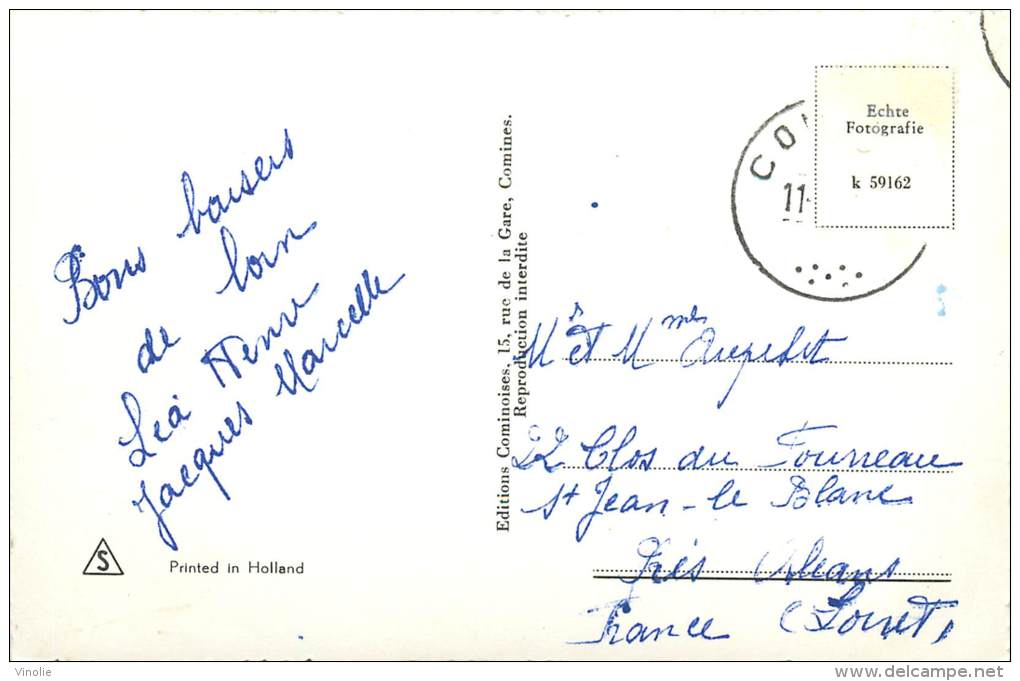 Bons baisers
de loin
Léa Henri
Jacques Marcelle
Printed in Holland
S
Editions Cominoises, 15, rue de la Gare, Comines.
Reproduction interdite
Echte
Fotografie
k 59162
CO
11-
Mr et M mes
22 Clos du Fourneau
St Jean-le Blanc
Près Orléans
France (Loiret)
Vinolie
delcampe.net